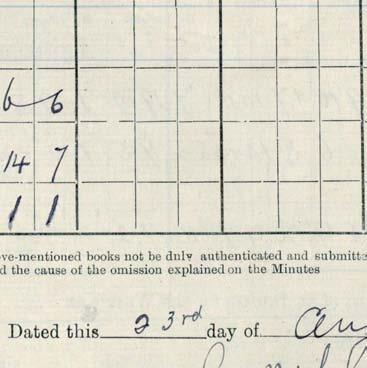 6 6
14 7
1 1
ve-mentioned books not be duly authenticated and submitte
d the cause of the omission explained on the Minutes
Dated this 23rd day of Aug